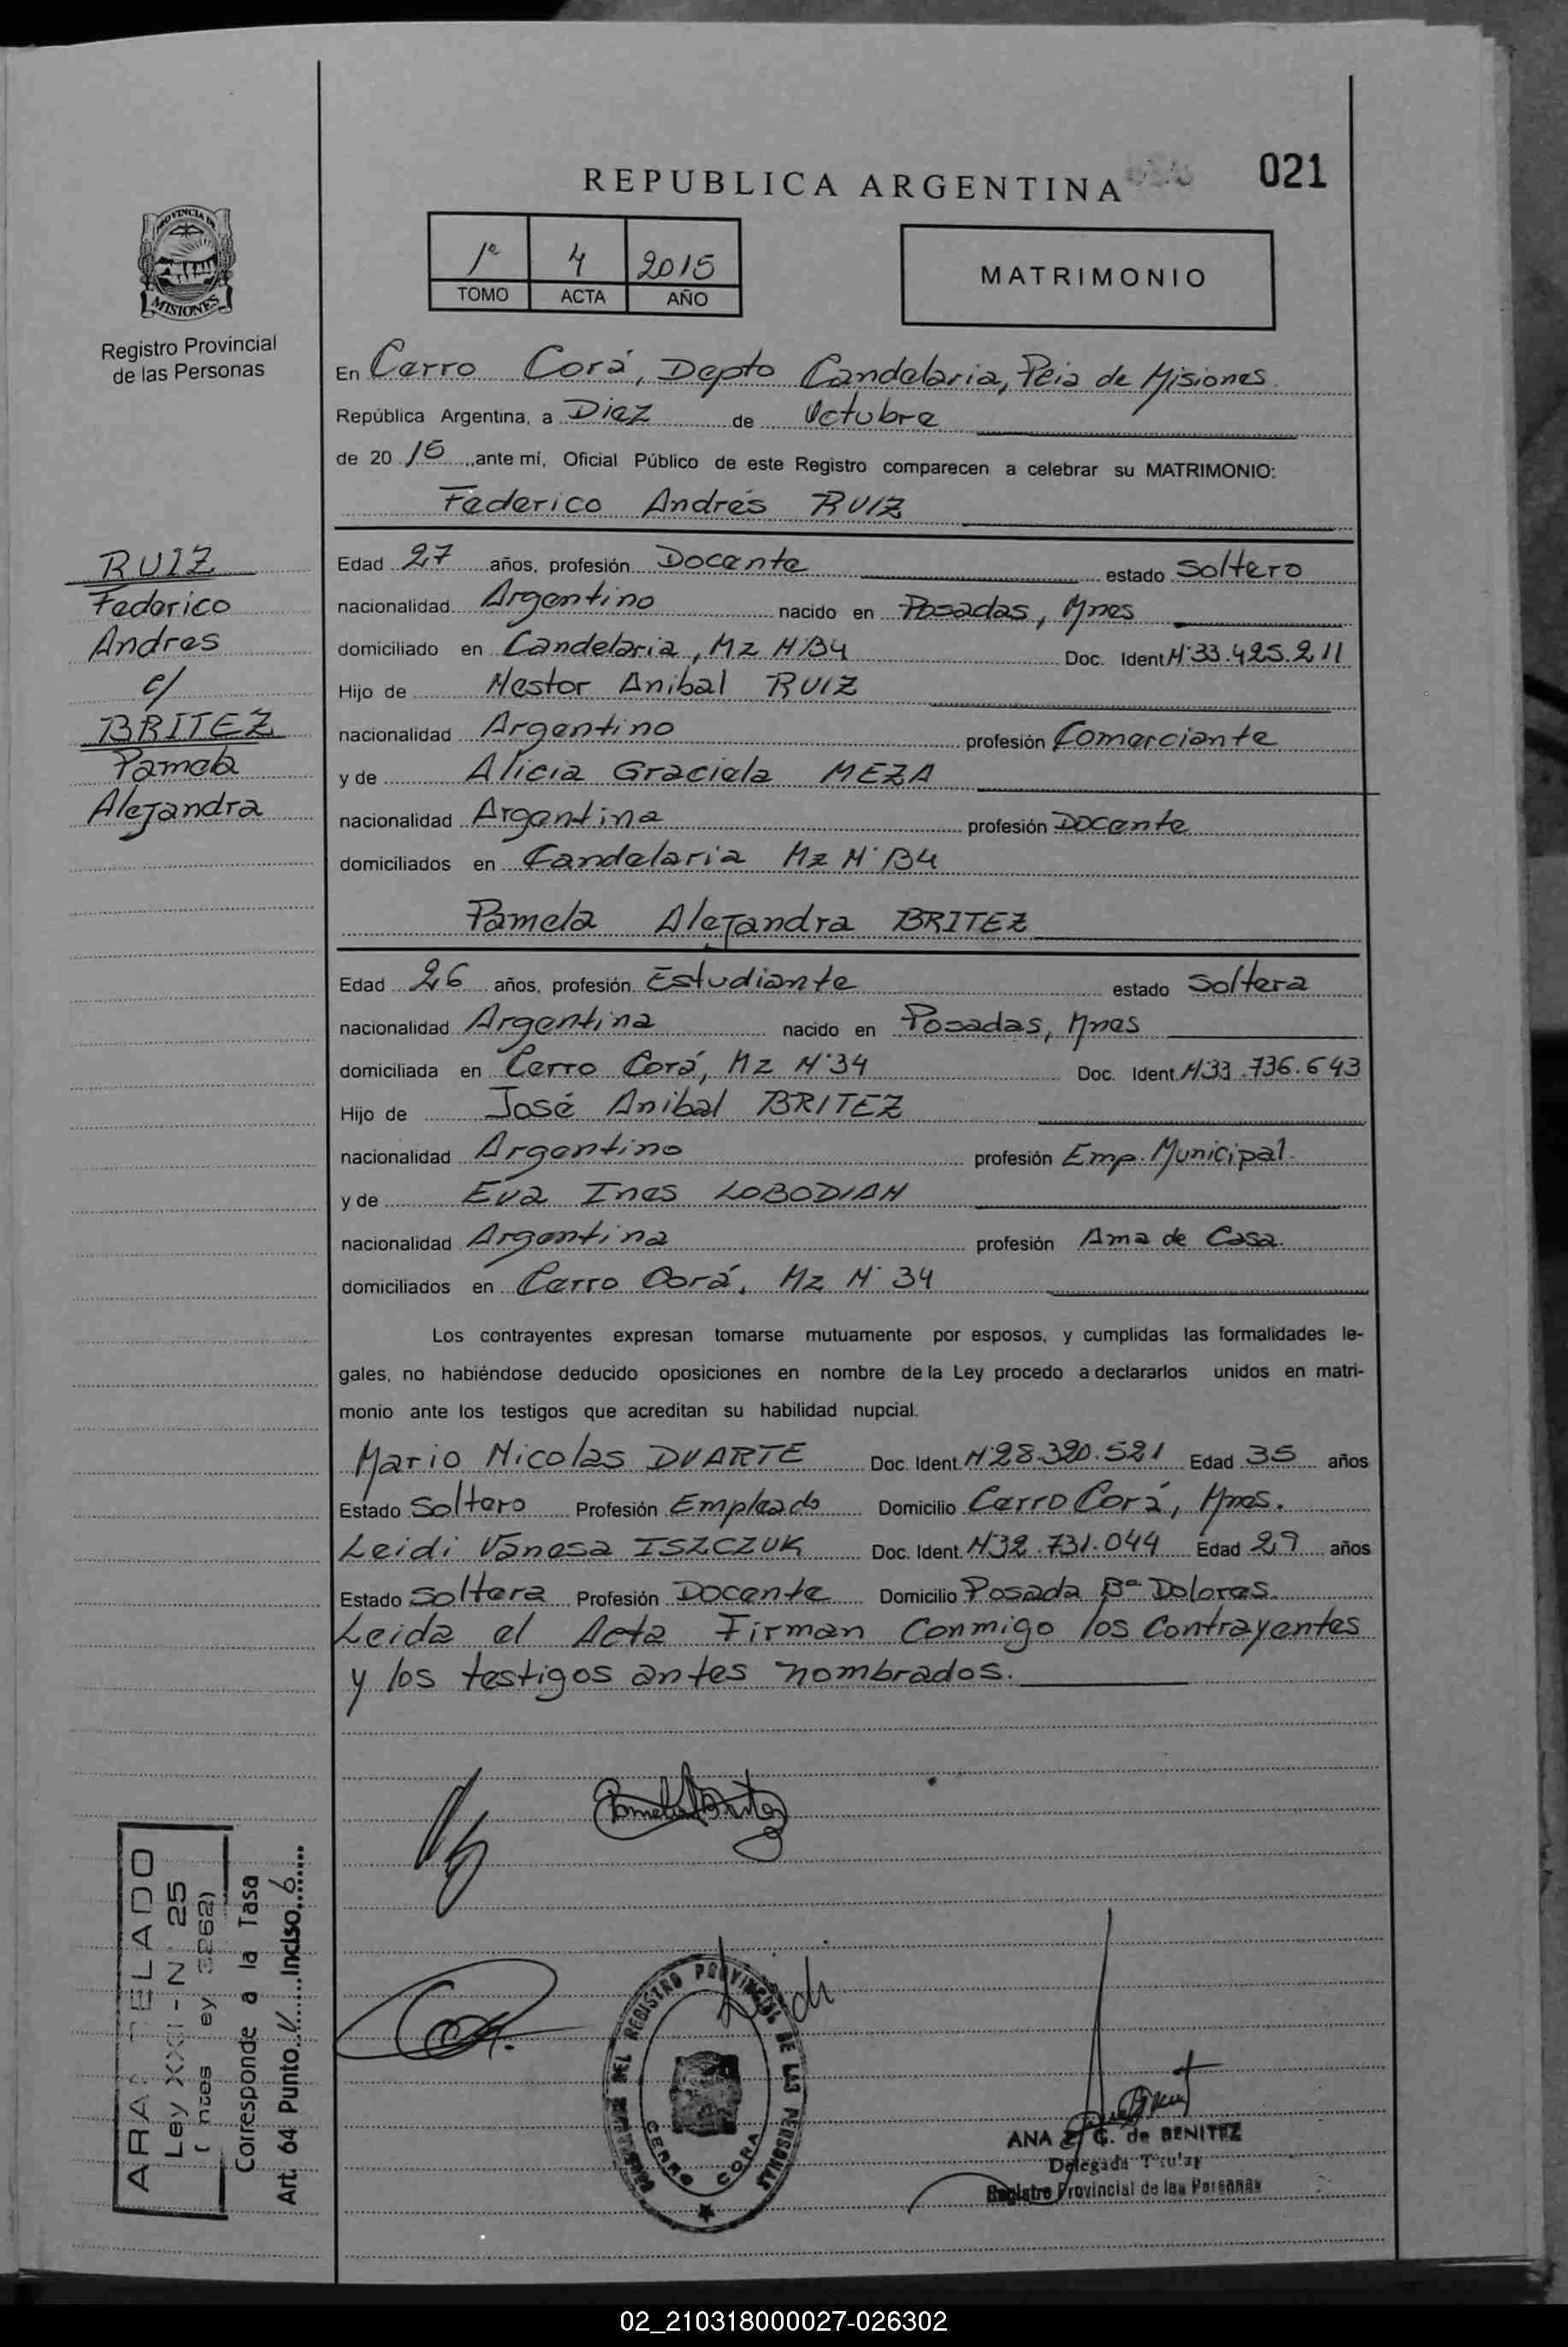 REPUBLICA ARGENTINA
021
PROVINCIA DE
MISIONES
Registro Provincial
de las Personas
1º 4 2015
TOMO ACTA AÑO
MATRIMONIO
En Cerro Corá, Depto Candelaria, Pcia de Misiones
República Argentina, a Diez de Octubre
de 20 15, ante mí, Oficial Público de este Registro comparecen a celebrar su MATRIMONIO:
Federico Andrés RUIZ
RUIZ
Federico
Andres
c/
BRITEZ
Pamela
Alejandra
Edad 27 años, profesión Docente estado Soltero
nacionalidad Argentino nacido en Posadas, Mnes
domiciliado en Candelaria, Mz Nº B4 Doc. Ident Nº 33.425.211
Hijo de Nestor Anibal RUIZ
nacionalidad Argentino profesión Comerciante
y de Alicia Graciela MEZA
nacionalidad Argentina profesión Docente
domiciliados en Candelaria Mz Nº B4
Pamela Alejandra BRITEZ
Edad 26 años, profesión Estudiante estado Soltera
nacionalidad Argentina nacido en Posadas, Mnes
domiciliada en Cerro Corá, Mz Nº 34 Doc. Ident Nº 33.736.643
Hijo de José Anibal BRITEZ
nacionalidad Argentino profesión Emp. Municipal
y de Eva Ines LOBODIAN
nacionalidad Argentina profesión Ama de Casa.
domiciliados en Cerro Corá, Mz Nº 34
Los contrayentes expresan tomarse mutuamente por esposos, y cumplidas las formalidades le-
gales, no habiéndose deducido oposiciones en nombre de la Ley procedo a declararlos unidos en matri-
monio ante los testigos que acreditan su habilidad nupcial.
Mario Nicolas DUARTE Doc. Ident. Nº 28.320.521 Edad 35 años
Estado Soltero Profesión Empleado Domicilio Cerro Corá, Mnes.
Leidi Vanesa ISZCZUK Doc. Ident. Nº 32.731.044 Edad 29 años
Estado Soltera Profesión Docente Domicilio Posada Bº Dolores.
Leida el Acta Firman Conmigo los Contrayentes
y los testigos antes nombrados.
Pamela Britez
Leidi
REGISTRO PROVINCIAL DE LAS PERSONAS
CERRO CORA
ANA E. G. de BENITEZ
Delegada Titular
Registro Provincial de las Personas
Ley XXII - Nº 25
Corresponde a la Tasa
Art. 64 Punto V Inciso 6
02_210318000027-026302